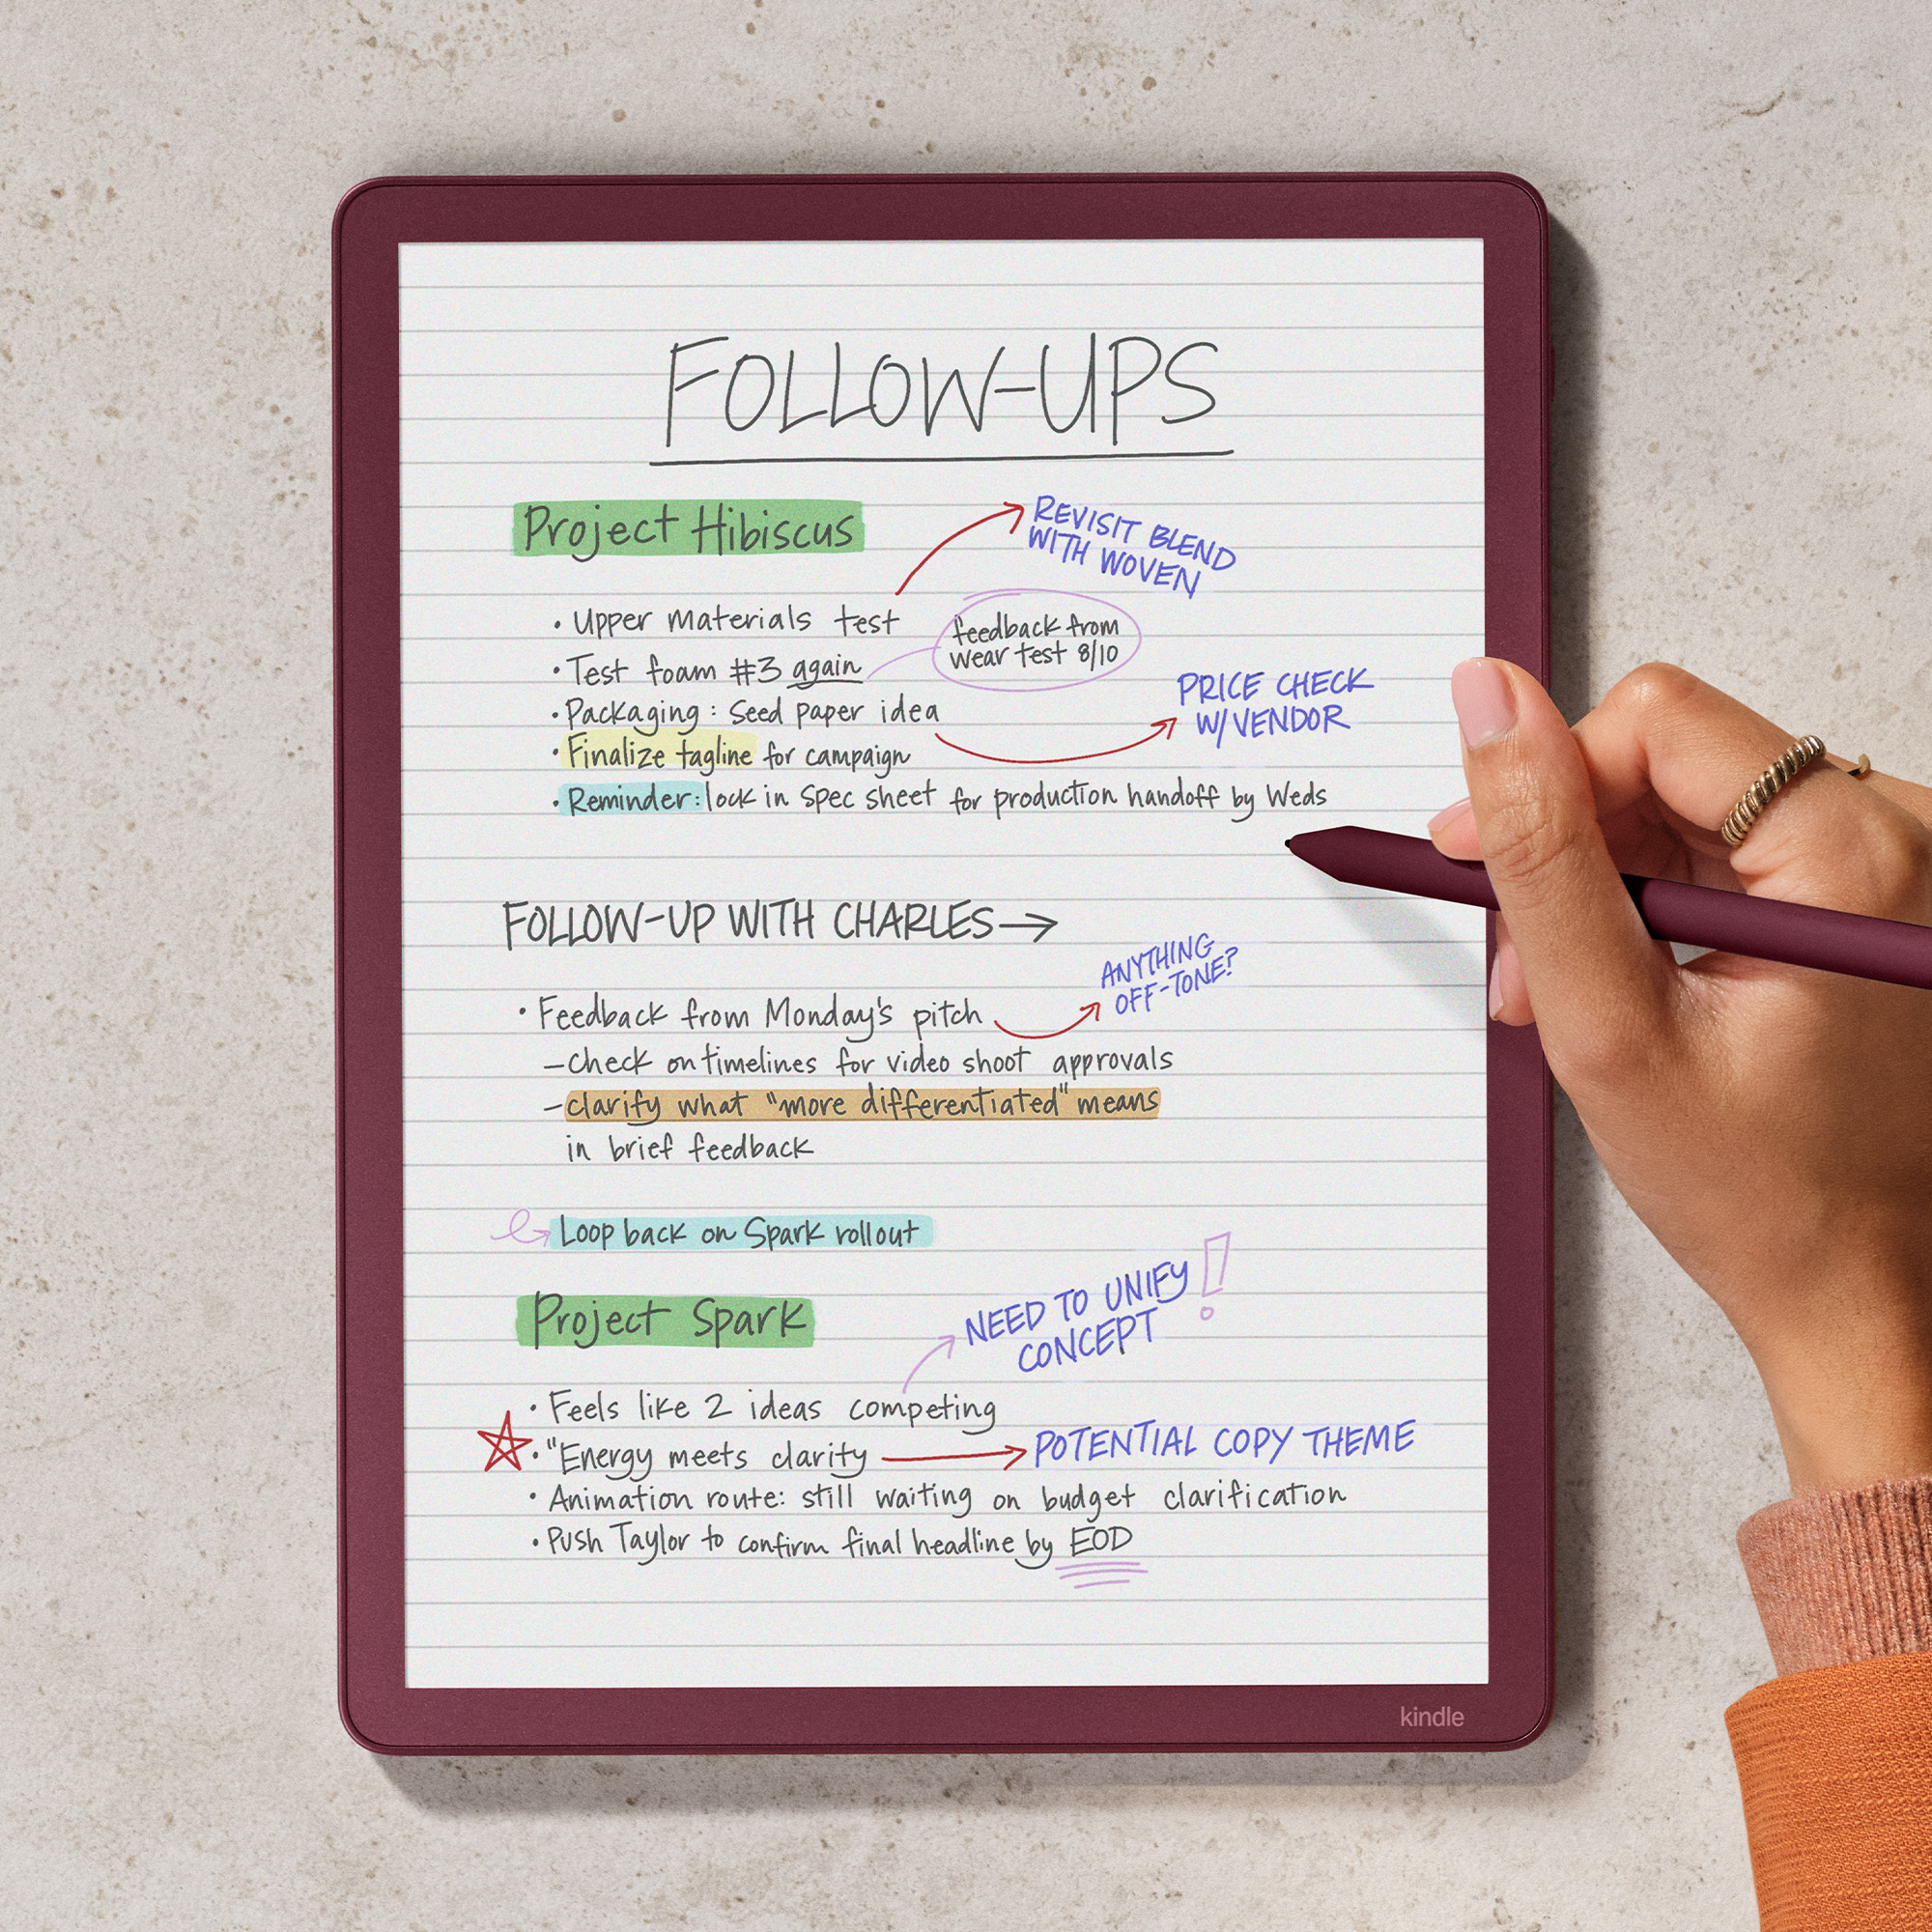 FOLLOW-UPS
Project Hibiscus
REVISIT BLEND
WITH WOVEN
• Upper materials test
feedback from
wear test 8/10
• Test foam #3 again
• Packaging: seed paper idea
PRICE CHECK
W/VENDOR
• Finalize tagline for campaign
• Reminder: lock in spec sheet for production handoff by Weds
FOLLOW-UP WITH CHARLES →
ANYTHING
OFF-TONE?
• Feedback from Monday's pitch
– check on timelines for video shoot approvals
– clarify what "more differentiated" means
in brief feedback
Loop back on Spark rollout
Project Spark
NEED TO UNIFY!
CONCEPT
• Feels like 2 ideas competing
• "Energy meets clarity → POTENTIAL COPY THEME
• Animation route: still waiting on budget clarification
• Push Taylor to confirm final headline by EOD
kindle